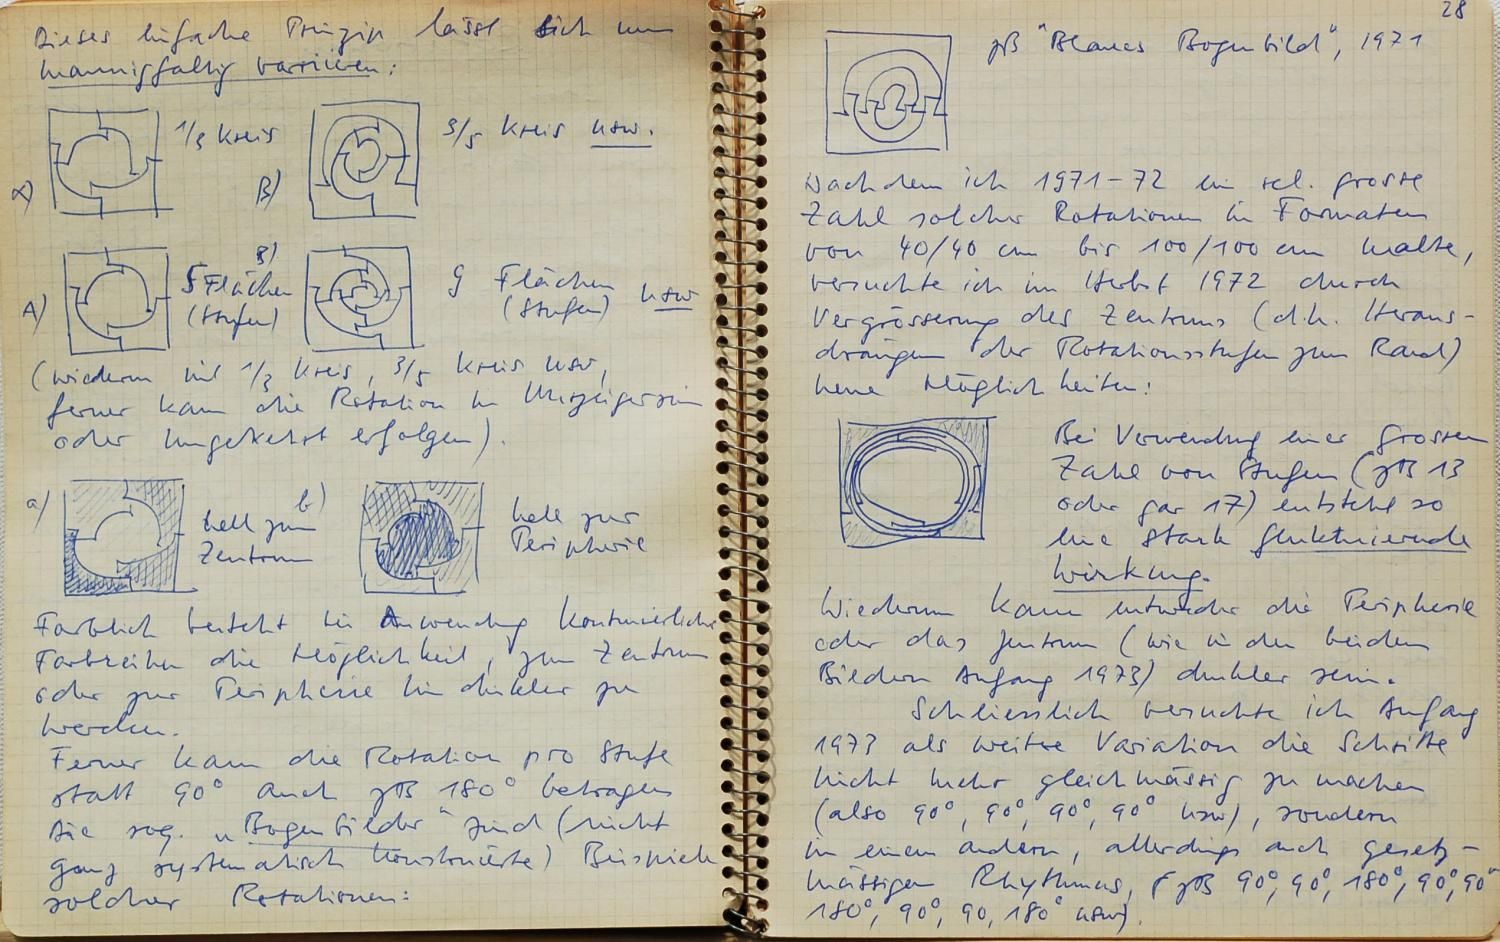 Dieses einfache Prinzip lässt sich nun
mannigfaltig variieren:
α) 1/3 Kreis β) 3/5 Kreis usw.
A) 5 Flächen (Stufen) B) 9 Flächen (Stufen) usw
(wiederum mit 1/3 Kreis, 3/5 Kreis usw,
ferner kann die Rotation im Uhrzeigersinn
oder umgekehrt erfolgen).
a) hell zum Zentrum b) hell zur Peripherie
Farblich besteht in Anwendung kontinuierlicher
Farbreihen die Möglichkeit, zum Zentrum
oder zur Peripherie hin dunkler zu
werden.
Ferner kann die Rotation pro Stufe
statt 90° auch zB 180° betragen
Die sog. „Bogenbilder“ sind (nicht
ganz systematisch konstruierte) Beispiele
solcher Rotationen:
28
zB "Blaues Bogenbild", 1971
Nachdem ich 1971-72 ein rel. grosse
Zahl solcher Rotationen in Formaten
von 40/40 cm bis 100/100 cm malte,
versuchte ich im Herbst 1972 durch
Vergrösserung des Zentrums (d.h. Heraus-
drängen der Rotationsstufen zum Rand)
neue Möglichkeiten:
Bei Verwendung einer grossen
Zahl von Stufen (zB 13
oder gar 17) entsteht so
eine stark fluktuierende
Wirkung.
Wiederum kann entweder die Peripherie
oder das Zentrum (wie in den beiden
Bildern Anfang 1973) dunkler sein.
Schliesslich versuchte ich Anfang
1973 als weitere Variation die Schritte
nicht mehr gleichmässig zu machen
(also 90°, 90°, 90°, 90° usw), sondern
in einem andern, allerdings auch gesetz-
mässigen Rhythmus, (zB 90°, 90°, 180°, 90°, 90°
180°, 90°, 90, 180° usw).